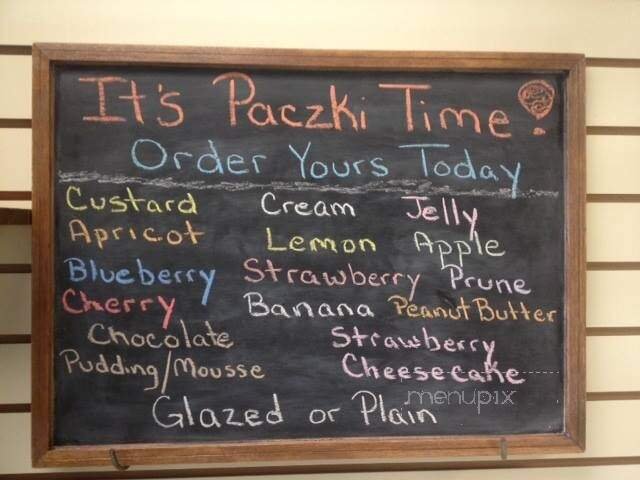 It's Paczki Time!
Order Yours Today
Custard Cream Jelly
Apricot Lemon Apple
Blueberry Strawberry Prune
Cherry Banana Peanut Butter
Chocolate Strawberry
Pudding/Mousse Cheesecake
menupix
Glazed or Plain